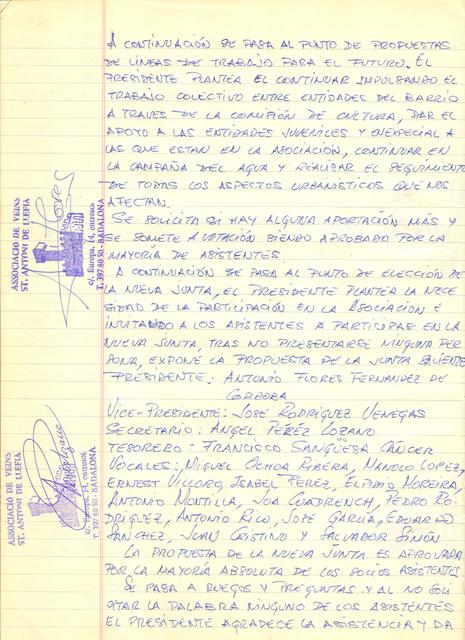 A CONTINUACIÓN SE PASA AL PUNTO DE PROPUESTAS
DE LÍNEAS DE TRABAJO PARA EL FUTURO. ÉL
PRESIDENTE PLANTEA EL CONTINUAR IMPULSANDO EL
TRABAJO COLECTIVO ENTRE ENTIDADES DEL BARRIO
A TRAVES DE LA COMISIÓN DE CULTURA, DAR EL
APOYO A LAS ENTIDADES JUVENILES Y EN ESPECIAL A
LAS QUE ESTAN EN LA ASOCIACIÓN, CONTINUAR EN
LA CAMPAÑA DEL AGUA Y REALIZAR EL SEGUIMIENTO
DE TODAS LOS ASPECTOS URBANISTICOS QUE NOS
AFECTAN.
SE SOLICITA SI HAY ALGUNA APORTACIÓN MÁS Y
SE SOMETE A VOTACIÓN SIENDO APROBADA POR LA
MAYORIA DE ASISTENTES
A CONTINUACIÓN SE PASA AL PUNTO DE ELECCIÓN DE
LA NUEVA JUNTA, EL PRESIDENTE PLANTEA LA NECE
SIDAD DE LA PARTICIPACIÓN EN LA ASOCIACION E
INVITANDO A LOS ASISTENTES A PARTICIPAR EN LA
NUEVA JUNTA, TRAS NO PRESENTARSE NINGUNA PER
SONA, EXPONE LA PROPUESTA DE LA JUNTA SIGUIENTE
PRESIDENTE: ANTONIO FLORES FERNANDEZ DE
CORDOBA
VICE-PRESIDENTE: JOSÉ RODRÍGUEZ VENEGAS
SECRETARIO: ANGEL PÉREZ LOZANO
TESORERO: FRANCISCO SANGÜESA CÁNCER
VOCALES: MIGUEL OCHOA RIBERA, MANOLO LOPEZ,
ERNEST VILLORO, ISABEL PEREZ, ELPIDIO MOREIRA,
ANTONIO MONTILLA, JOA CUADRENCH, PEDRO RO-
DRIGUEZ, ANTONIO RICO, JOSÉ GARCÍA, EDUARDO
SANCHEZ, JUAN CRISTINO Y SALVADOR SIMÓN
LA PROPUESTA DE LA NUEVA JUNTA ES APROVADA
POR LA MAYORÍA ABSOLUTA DE LOS SOCIOS ASISTENTES
SE PASA A RUEGOS Y PREGUNTAS Y AL NO SOLI
CITAR LA PALABRA NINGUNO DE LOS ASISTENTES
EL PRESIDENTE AGRADECE LA ASISTENCIA Y DA
ASSOCIACIO DE VEINS
ST. ANTONI DE LLEFIA
c/. Europa, 14, entresol
T. 397 80 50 - BADALONA
ASSOCIACIO DE VEINS
ST. ANTONI DE LLEFIA
c/. Europa, 14, entresol
T. 397 80 50 - BADALONA